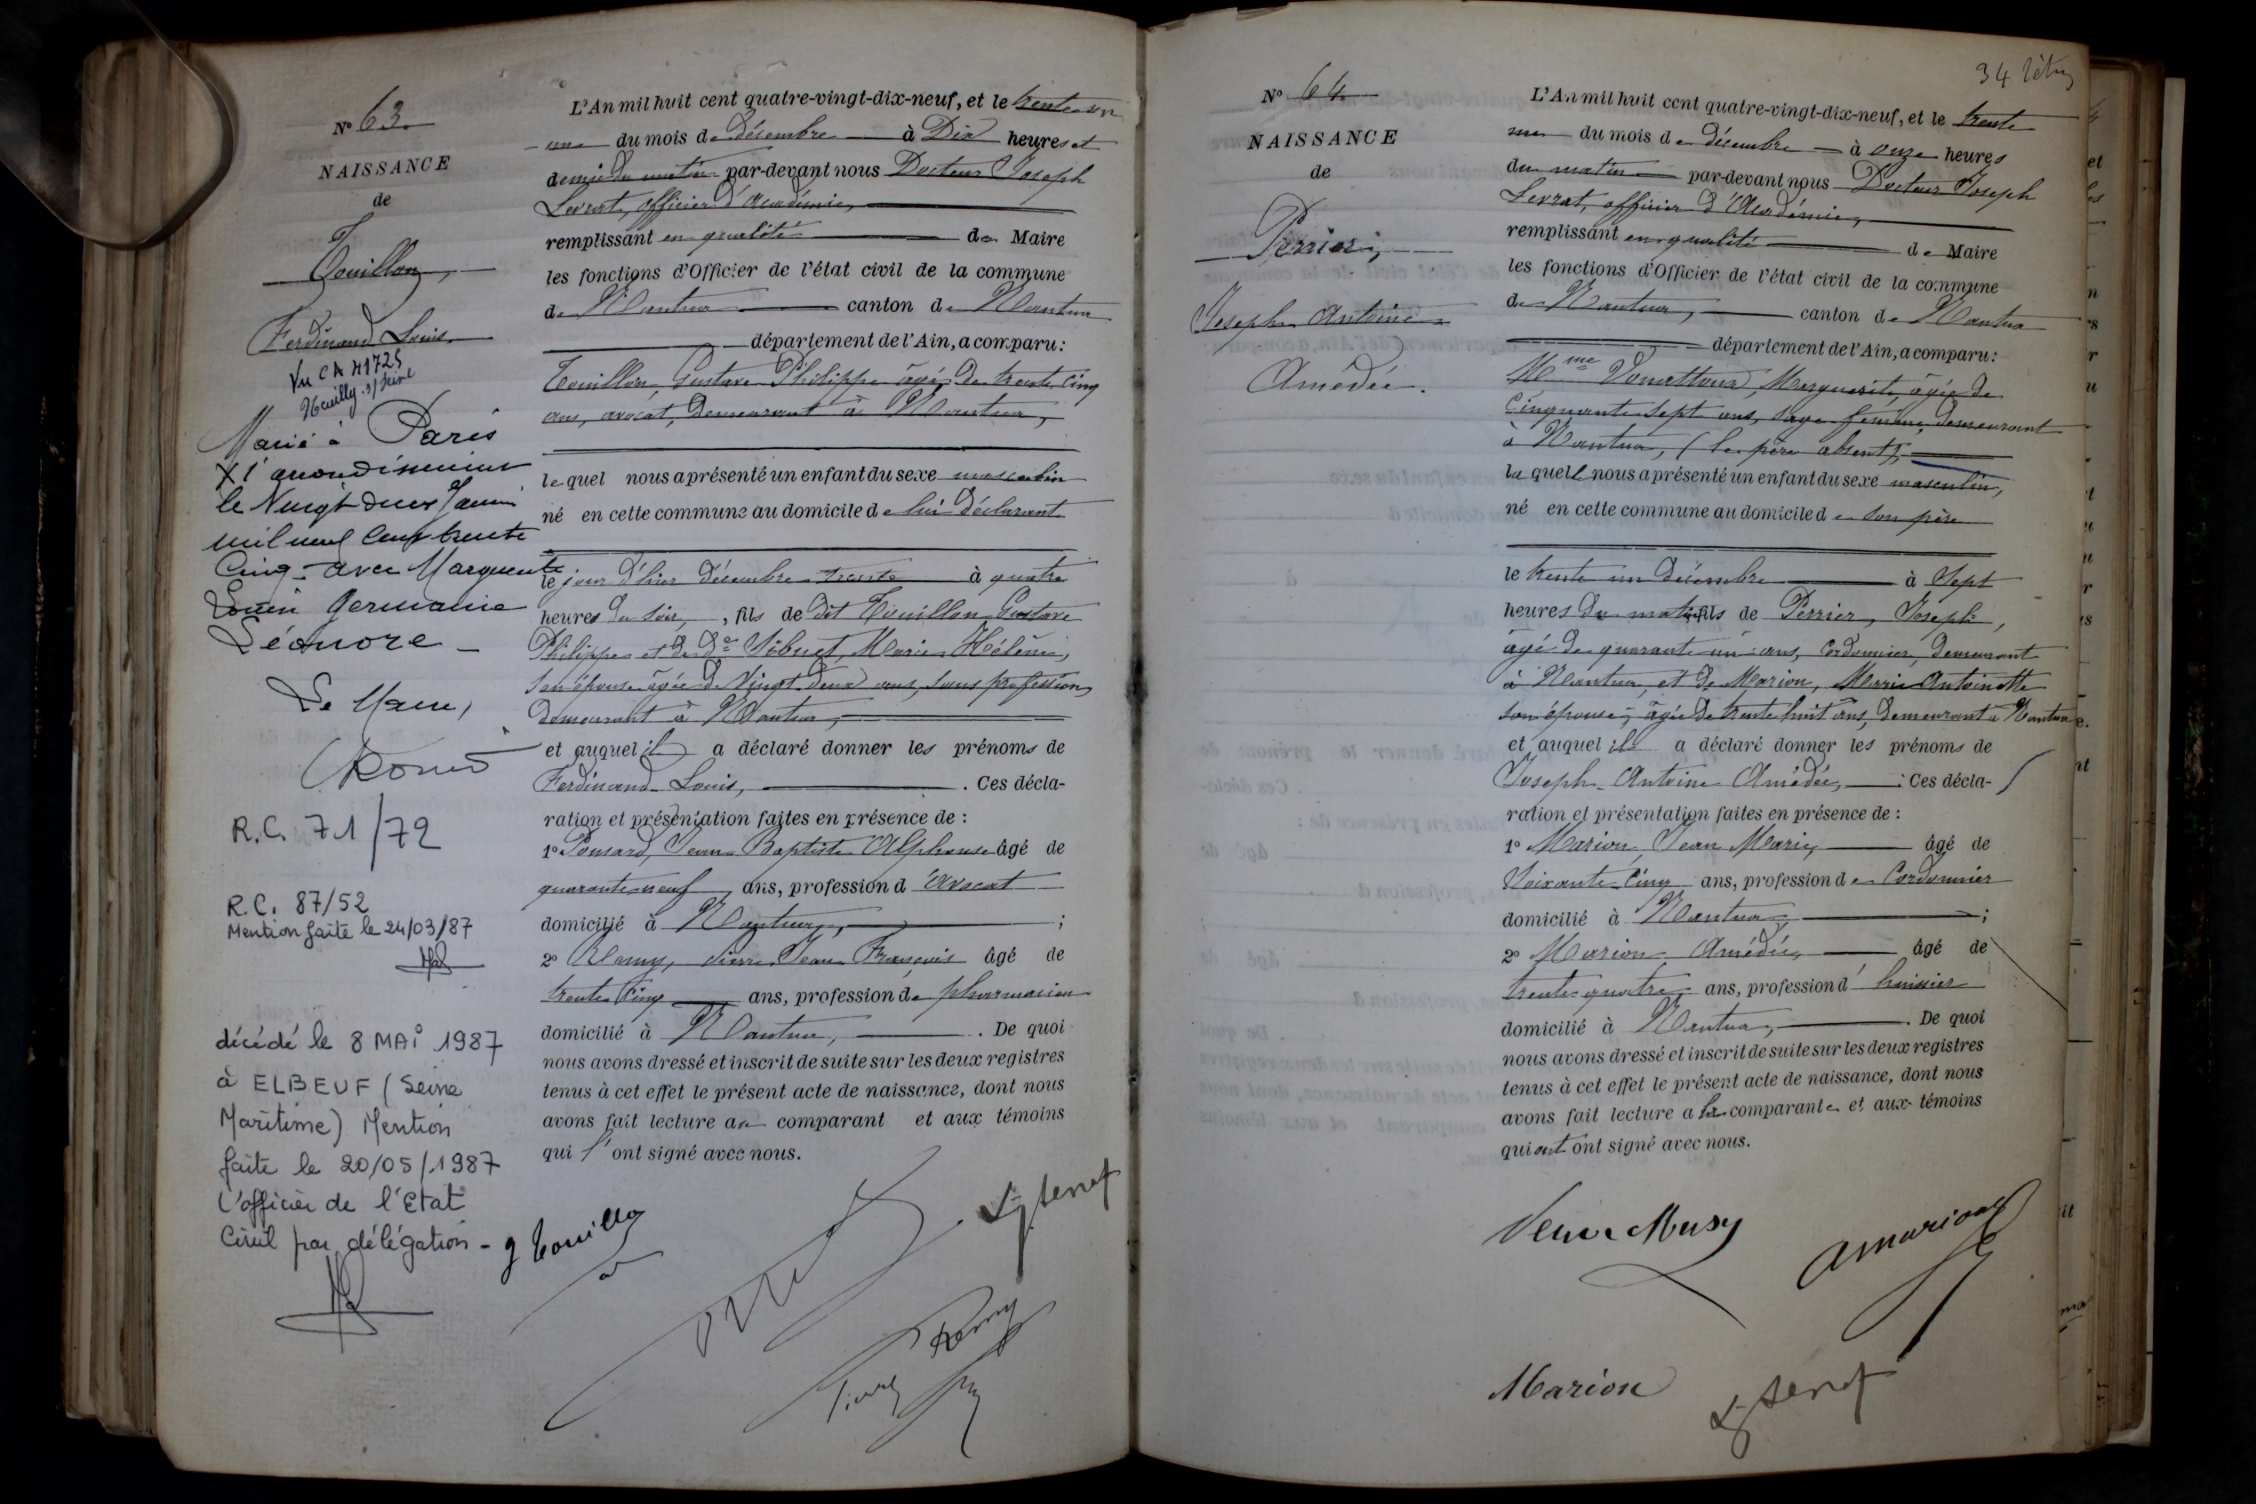 N° 63
NAISSANCE
de
Touillon,
Ferdinand Louis.
Vu CA 41725
Neuilly s/ Seine
Marié à Paris
XI arrondissement
le Vingt deux Janvier
mil neuf cent trente
Cinq - avec Marguerite
Germaine
Léonore -
Le Maire,
R.C. 71/72
R.C. 87/52
Mention faite le 24/03/87
décédé le 8 MAI 1987
à ELBEUF (Seine
Maritime) Mention
faite le 20/05/1987
L'officier de l'Etat
Civil par délégation -
L'An mil huit cent quatre-vingt-dix-neuf, et le trente un
du mois de décembre à Dix heures et
demie du matin par-devant nous Docteur Joseph
Levrat, officier d'Académie,
remplissant en qualité de Maire
les fonctions d'Officier de l'état civil de la commune
de Nantua canton de Nantua
département de l'Ain, a comparu:
Touillon Gustave Philippe âgé de trente cinq
ans, avocat, demeurant à Nantua,
lequel nous a présenté un enfant du sexe masculin
né en cette commune au domicile de lui déclarant
le jour d'hier décembre trente à quatre
heures du soir, fils de dit Touillon Gustave
Philippe et de Marie Hélène,
son épouse âgée de Vingt deux ans, sans profession
demeurant à Nantua,
et auquel il a déclaré donner les prénoms de
Ferdinand Louis, . Ces décla-
ration et présentation faites en présence de :
1° Ponsard, Jean Baptiste Alphonse âgé de
quarante neuf ans, profession d'Avocat
domicilié à Nantua, ;
2° Remy, Pierre Jean François âgé de
trente cinq ans, profession de pharmacien
domicilié à Nantua, . De quoi
nous avons dressé et inscrit de suite sur les deux registres
tenus à cet effet le présent acte de naissance, dont nous
avons fait lecture au comparant et aux témoins
qui l' ont signé avec nous.
g Touillon
Remy
N° 64
NAISSANCE
de
Perrier,
Joseph Antoine
Amédée.
34
L'An mil huit cent quatre-vingt-dix-neuf, et le trente
un du mois de décembre à onze heures
du matin par-devant nous Docteur Joseph
Levrat, officier d'Académie,
remplissant en qualité de Maire
les fonctions d'Officier de l'état civil de la commune
de Nantua, canton de Nantua
département de l'Ain, a comparu:
Mme Marguerite, âgée de
cinquante sept ans, sage femme, demeurant
à Nantua, (le père absent),
laquelle nous a présenté un enfant du sexe masculin,
né en cette commune au domicile de son père
le trente un décembre à Sept
heures du matin fils de Perrier, Joseph,
âgé de quarante un ans, Cordonnier, demeurant
à Nantua, et de Marion, Marie Antoinette
son épouse, âgée de trente huit ans, demeurant à Nantua
et auquel a déclaré donner les prénoms de
Joseph Antoine Amédée, : Ces décla-
ration et présentation faites en présence de :
1° Marion, Jean Marie, âgé de
Soixante Cinq ans, profession de Cordonnier
domicilié à Nantua ;
2° Marion Amédée, âgé de
trente quatre ans, profession d'huissier
domicilié à Nantua, . De quoi
nous avons dressé et inscrit de suite sur les deux registres
tenus à cet effet le présent acte de naissance, dont nous
avons fait lecture a la comparante et aux témoins
qui ont ont signé avec nous.
Veuve Musy
A Marion
Marion